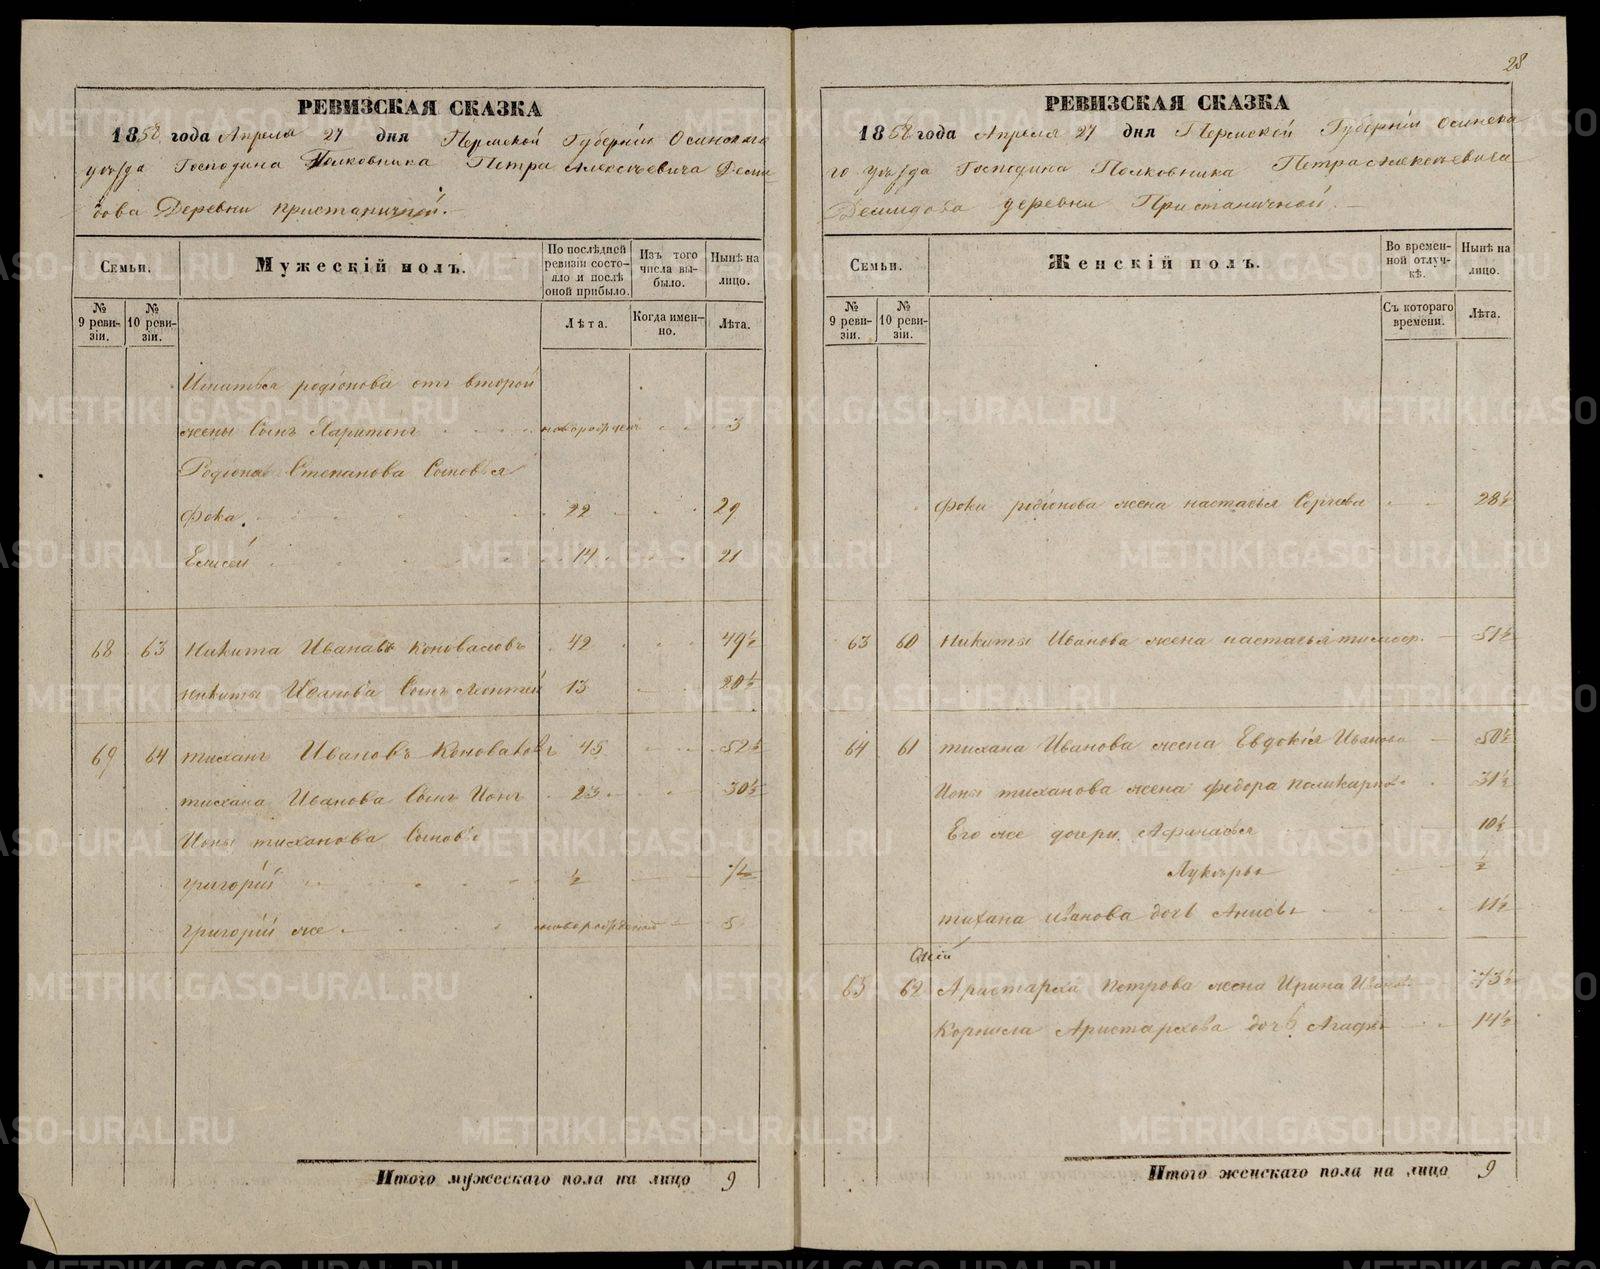 28
РЕВИЗСКАЯ СКАЗКА
1858 года Апреля 27 дня Пермской Губерніи Осинскаго
уѣзда Господина Полковника Петра Алексѣевича Деми
дова Деревни пристаничной.
Семьи.
Мужескій полъ.
По послѣдней ревизіи состояло и послѣ оной прибыло.
Изъ того числа выбыло.
Нынѣ на лицо.
№ 9 ревизіи.
№ 10 ревизіи.
Лѣта.
Когда именно.
Лѣта.
Игнатья родіонова отъ второй
жены Сынъ Харитонъ новорожден 3
Родіона Степанова Сыновья
Фока 22 29
Елисей 14 21
68 63 Никита Ивановъ Коноваловъ 42 49½
Никиты Иванова Сынъ Леонтей 13 20½
69 64 тиханъ Ивановъ Коноваловъ 45 52½
тихана Иванова Сынъ Иона 23 30½
Ионы тиханова Сыновья
григорій ½ 7½
григорій же новорожденой 5
Итого мужескаго пола на лицо 9
РЕВИЗСКАЯ СКАЗКА
1858 года Апреля 27 дня Пермской Губерніи Осинска
го уѣзда Господина Полковника Петра Алексѣевича
Демидова деревни Пристаничной.
Семьи.
Женскій полъ.
Во временной отлучкѣ.
Нынѣ на лицо.
№ 9 ревизіи.
№ 10 ревизіи.
Съ котораго времени.
Лѣта.
Фоки родіонова жена настасья Сергѣева 28½
63 60 Никиты Иванова жена настасья тимоф. 51½
64 61 тихана Иванова жена Евдокія Иванова 50½
Ионы тиханова жена федора поликарпо 31½
Его же дочери Афанасья 10½
Лукерья ½
тихана иванова дочь Анисья 11½
65 62 Аристарха Петрова жена Ирина Иванов 73½
Корнила Аристархова дочь Агафья 14½
Итого женскаго пола на лицо 9
METRIKI.GASO-URAL.RU